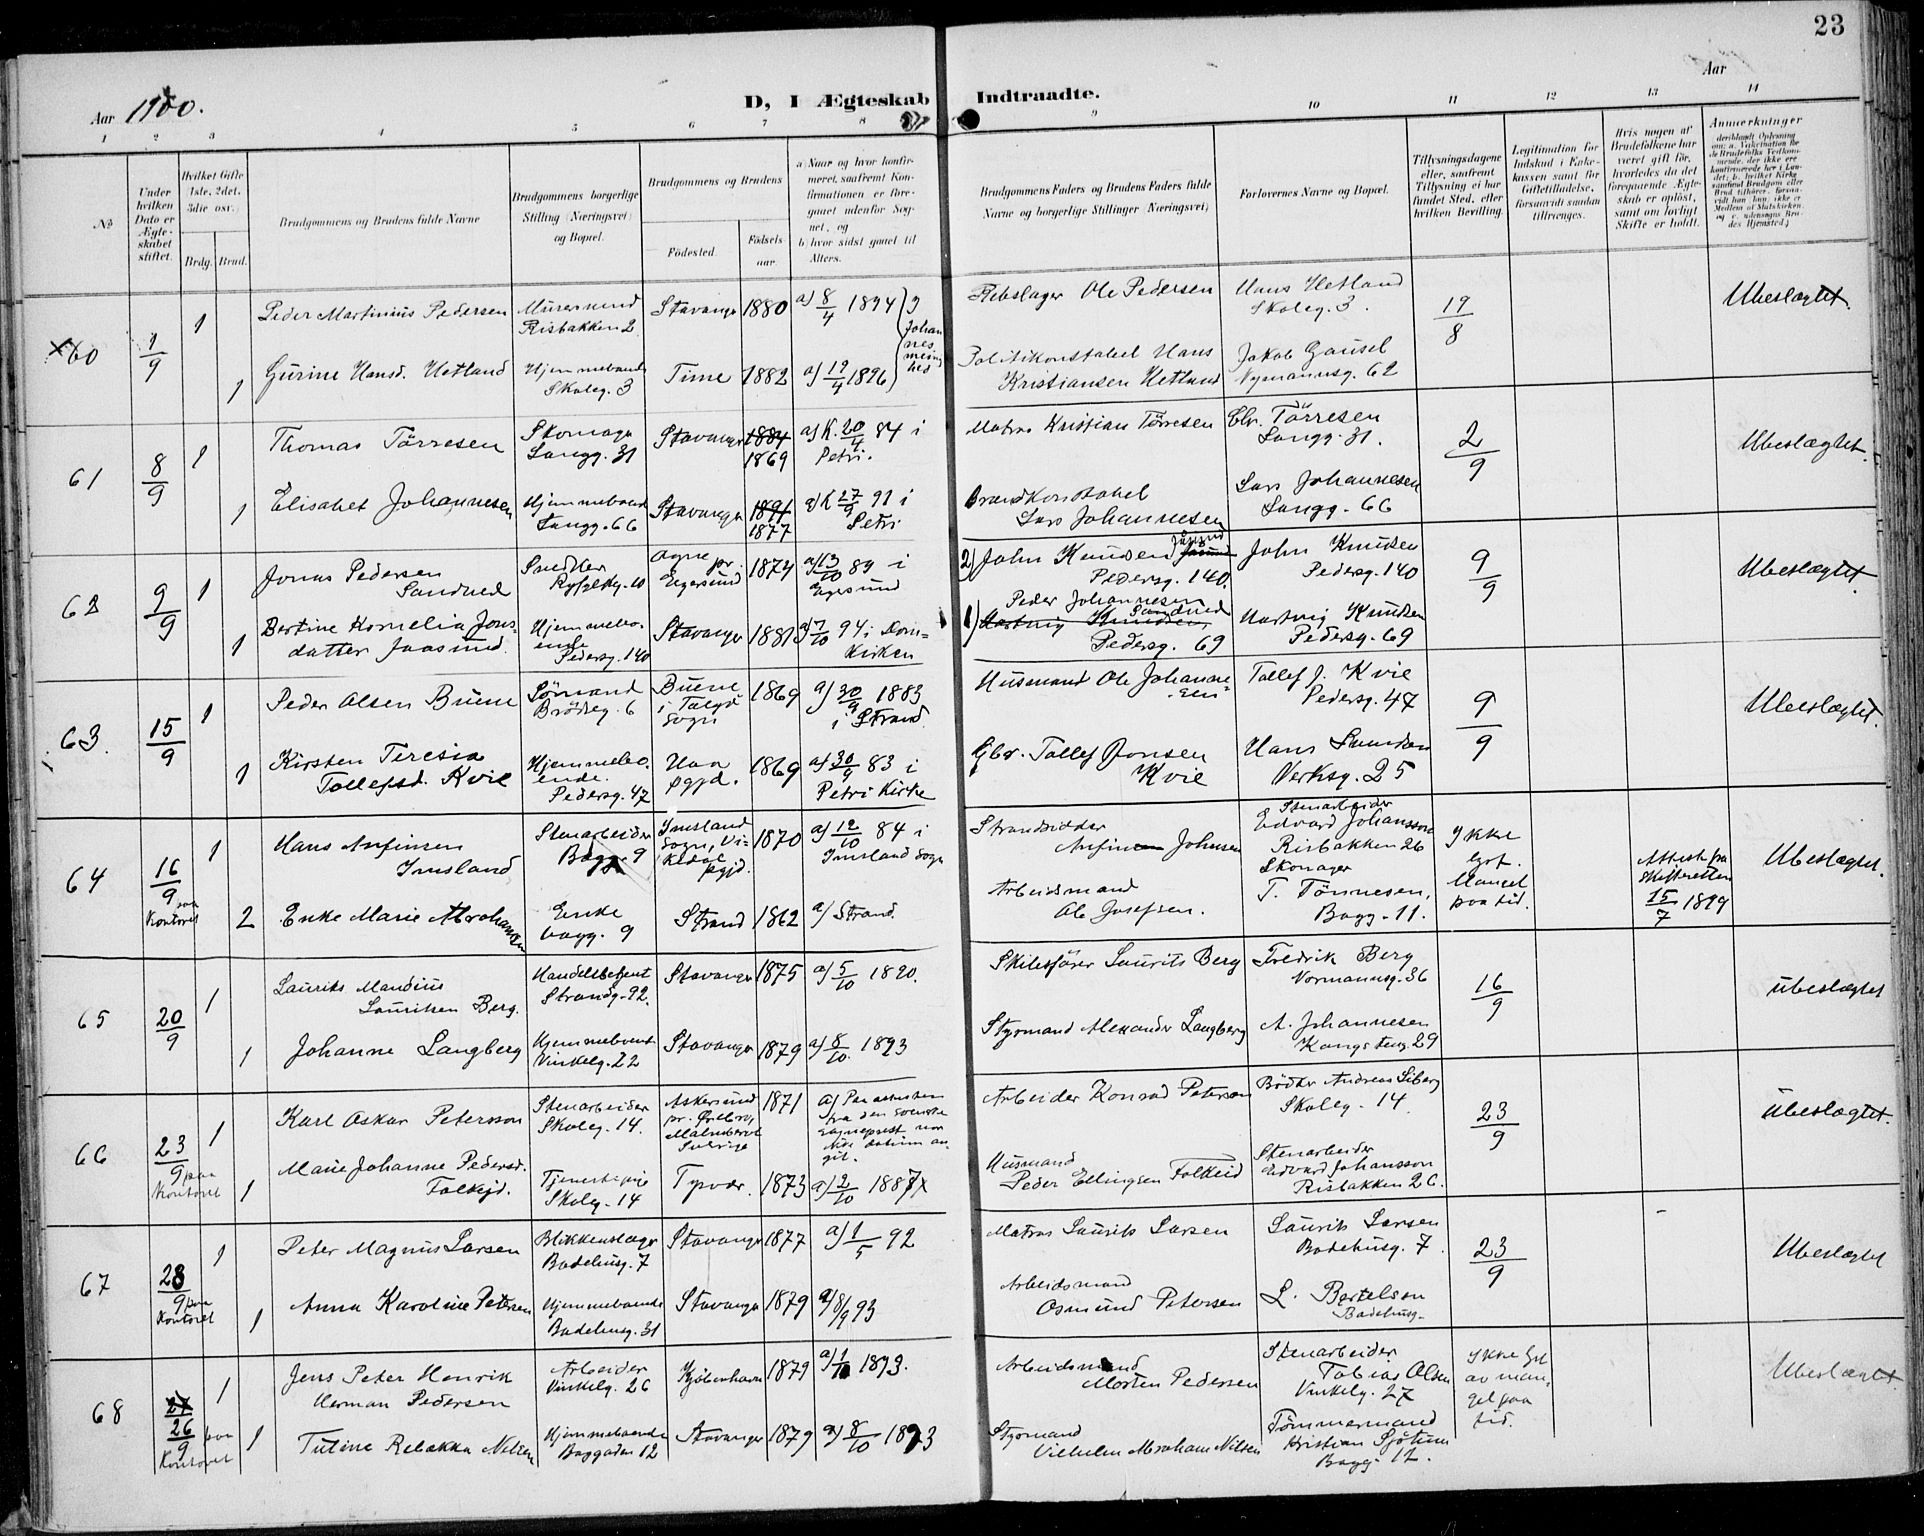 23
Aar 1900.
D, I Ægteskab Indtraadte.
Aar
1 2 3 4 5 6 7 8 9 10 11 12 13 14
No
Under hvilken Dato er Ægteskabet stiftet.
Hvilket Gifte 1ste, 2det, 3die osv.
Brdg. Brud.
Brudgommens og Brudens fulde Navne
Brudgommens borgerlige Stilling (Næringsvei) og Bopæl.
Brudgommens og Brudens
Fødested.
Fødsels aar.
a) Naar og hvor konfirmeret, saafremt Konfirmationen er foregaaet udenfor Sognet, og
b) hvor sidst gaaet til Alters.
Brudgommens Faders og Brudens Faders fulde Navne og borgerlige Stillinger (Næringsvei)
Forlovernes Navne og Bopæl.
Tillysningsdagene eller, saafremt Tillysning ei har fundet Sted, efter hvilken Bevilling.
Legitimation for Indskud i Enkekassen samt for Giftetilladelse, forsaavidt saadan tiltrænges.
Hvis nogen af Brudefolkene har været gift før, hvorledes da det foregaaende Ægteskab er opløst, samt om lovligt Skifte er holdt.
Anmerkninger
60 1/9 1 Peder Martinius Pedersen Murersvend Risbakken 2 Stavanger 1880 a) 8/4 1894 Rebslager Ole Pedersen Hans Hetland Skoleg. 3. 19/8 Ubeslægtet.
1 Gurine Hansd. Hetland Hjemmeboende Skoleg. 3 Time 1882 a) 19/4 1896 Politikonstabel Hans Kristiansen Hetland Jakob Gausel Nymannsg. 62
61 8/9 1 Thomas Törresen Skomager Langg. 31 Stavanger 1884 1869 a) K. 20/4 84 i Petri. Matros Kristian Törresen Chr. Törresen Langg. 31. 2/9 Ubeslægtet.
1 Elisabet Johannesen Hjemmeboende Langg. 66 Stavanger 1891 1877 a) K 27/9 91 i Petri Brandkonstabel Lars Johannesen Lars Johannesen Langg. 66
62 9/9 1 Jonas Pedersen Sandved Snedker Ryfylkeg. 10 Ogne pr. Egersund 1874 a) 13/10 89 i Egersund 2) John Knudsen Jåsund Pedersg. 140. John Knudsen Pedersg. 140 9/9 Ubeslægtet
1 Bertine Kornelia Jonsdatter Jaasund. Hjemmeboende Pedersg. 140 Stavanger 1881 a) 7/10 94 i Domkirken 1) Peder Johannesen Sandved Hartvig Knudsen, Pedersg. 69 Hartvig Knudsen Pedersg. 69
63. 15/9 1 Peder Olsen Buene Sömand Brödreg. 6 Buene i Talgö Sogn 1869 a) 30/9 1883 i Strand. Husmand Ole Johannesen Tollef J. Kvie Pedersg. 47 9/9 Ubeslægtet.
1 Kirsten Teresia Tollefsd. Kvie Hjemmeboende. Pedersg. 47 Haa pgjd. 1869 a) 30/9 83 i Petri Kirke Gbr. Tollef Jonsen Kvie Hans Verksg. 25
64 16/9 paa Kontoret 1 Hans Anfinsen Imsland Stenarbeider Bagg. 9 Imsland Sogn, Vikedal pgjd. 1870 a) 12/10 84 i Imsland Sogn Strandsidder Anfin Johnsen Stenarbeider Edvard Johansson Risbakken 26 Ikke lyst. Mangel paa tid. Attest fra Skifteretten 15/7 1899 Ubeslægtet.
2 Enke Marie Abrahamsen Enke Bagg. 9 Strand 1862 a) Strand. Arbeidsmand Ole Josefsen. Skomager T. Tönnesen, Bagg. 11.
65 20/9 1 Laurits Mandius Lauritsen Berg. Handelsbetjent Strandg. 92. Stavanger 1875 a) 5/10 1890. Skibsförer Laurits Berg Fredrik Berg Normannsg. 36 16/9 Ubeslægtet
1 Johanne Langberg Hjemmeboende Vinkelg. 22 Stavanger 1879 a) 8/10. 1893 Styrmand Alexander Langberg A. Johannesen Kongsteng. 29
66 23/9 paa Kontoret 1 Karl Oskar Petersson Stenarbeider Skoleg. 14. Askersund pr. Örebro, Sverige 1871 a) Paa attesten fra den svenske Sogneprest var ikke datum angit. Arbeider Konrad Peterson Bödker Andreas Siberg Skoleg. 14. 23/9 Ubeslægtet.
1 Marie Johanne Pedersd. Falkejd. Tjenestepige Skoleg. 14 Tysvær. 1873 a) 2/10 1887 Husmand Peder Ellingsen Falkeid Stenarbeider Edvard Johansson Risbakken 26.
67 28/9 paa Kontoret 1 Peter Magnus Larsen Blikkenslager Badehusg. 7 Stavanger 1877 a) 1/5 92 Matros Laurits Larsen Laurits Larsen Badehusg. 7 23/9 Ubeslægtet
1 Anna Karoline Petersen Hjemmeboende Badehusg. 31 Stavanger 1879 a) 8/9 93 Arbeidsmand Osmund Petersen L. Bertelsen Badehusg.
68 26/9 paa Kontoret 1 Jens Peter Henrik Herman Pedersen Arbeider Vinkelg. 26 Kjöbenhavn 1879 a) 1/10 1893. Arbeidsmand Morten Pedersen Stenarbeider Tobias Olsen Vinkelg. 27 Ikke lyst av mangel paa tid. Ubeslægtet
1 Tutine Rebekka Nilsen Hjemmeboende Baggaden 12 Stavanger 1879 a) 8/10 1893 Styrmand Vilhelm Abraham Nilsen Tömmermand Kristian Sjötun Bagg. 12.